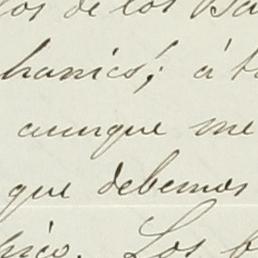 los de los Ba
hanics; á t
aunque me
que debemos
hico. Los b